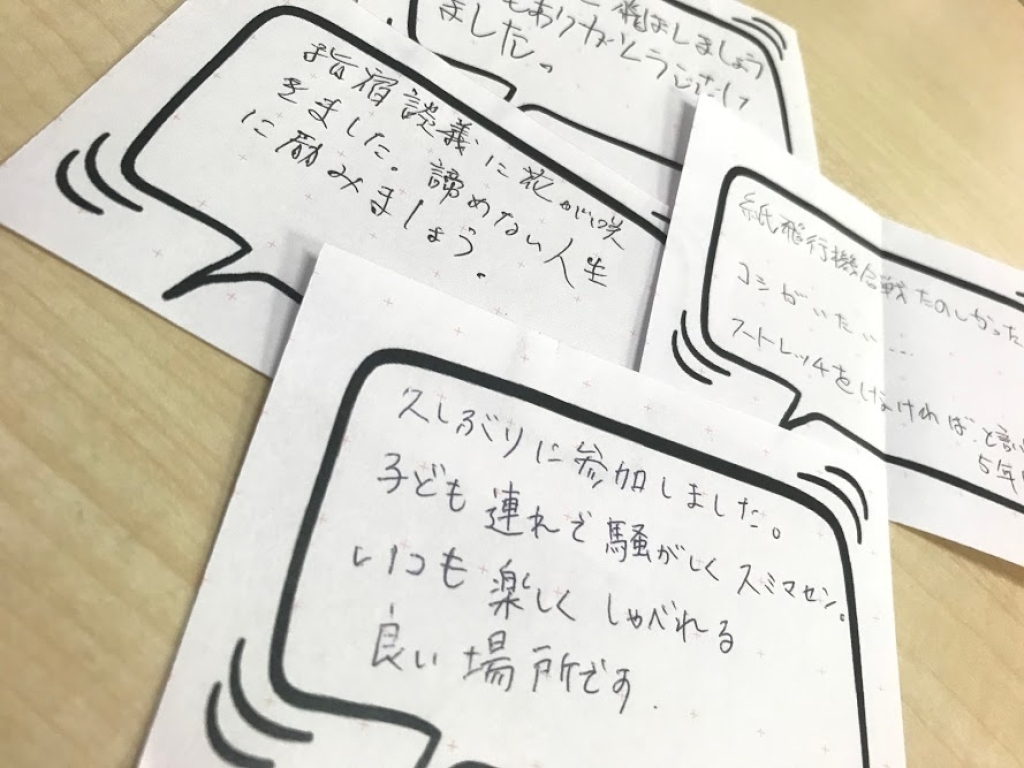 飛ばしましょう
もありがとうござい
ました。
指宿談義に花が咲
きました。諦めない人生
に励みましょう。
紙飛行機合戦たのしかった
コシがいたい…
ストレッチをしなければ、と
5年
久しぶりに参加しました。
子ども連れで騒がしくスミマセン。
いつも楽しくしゃべれる
良い場所です.